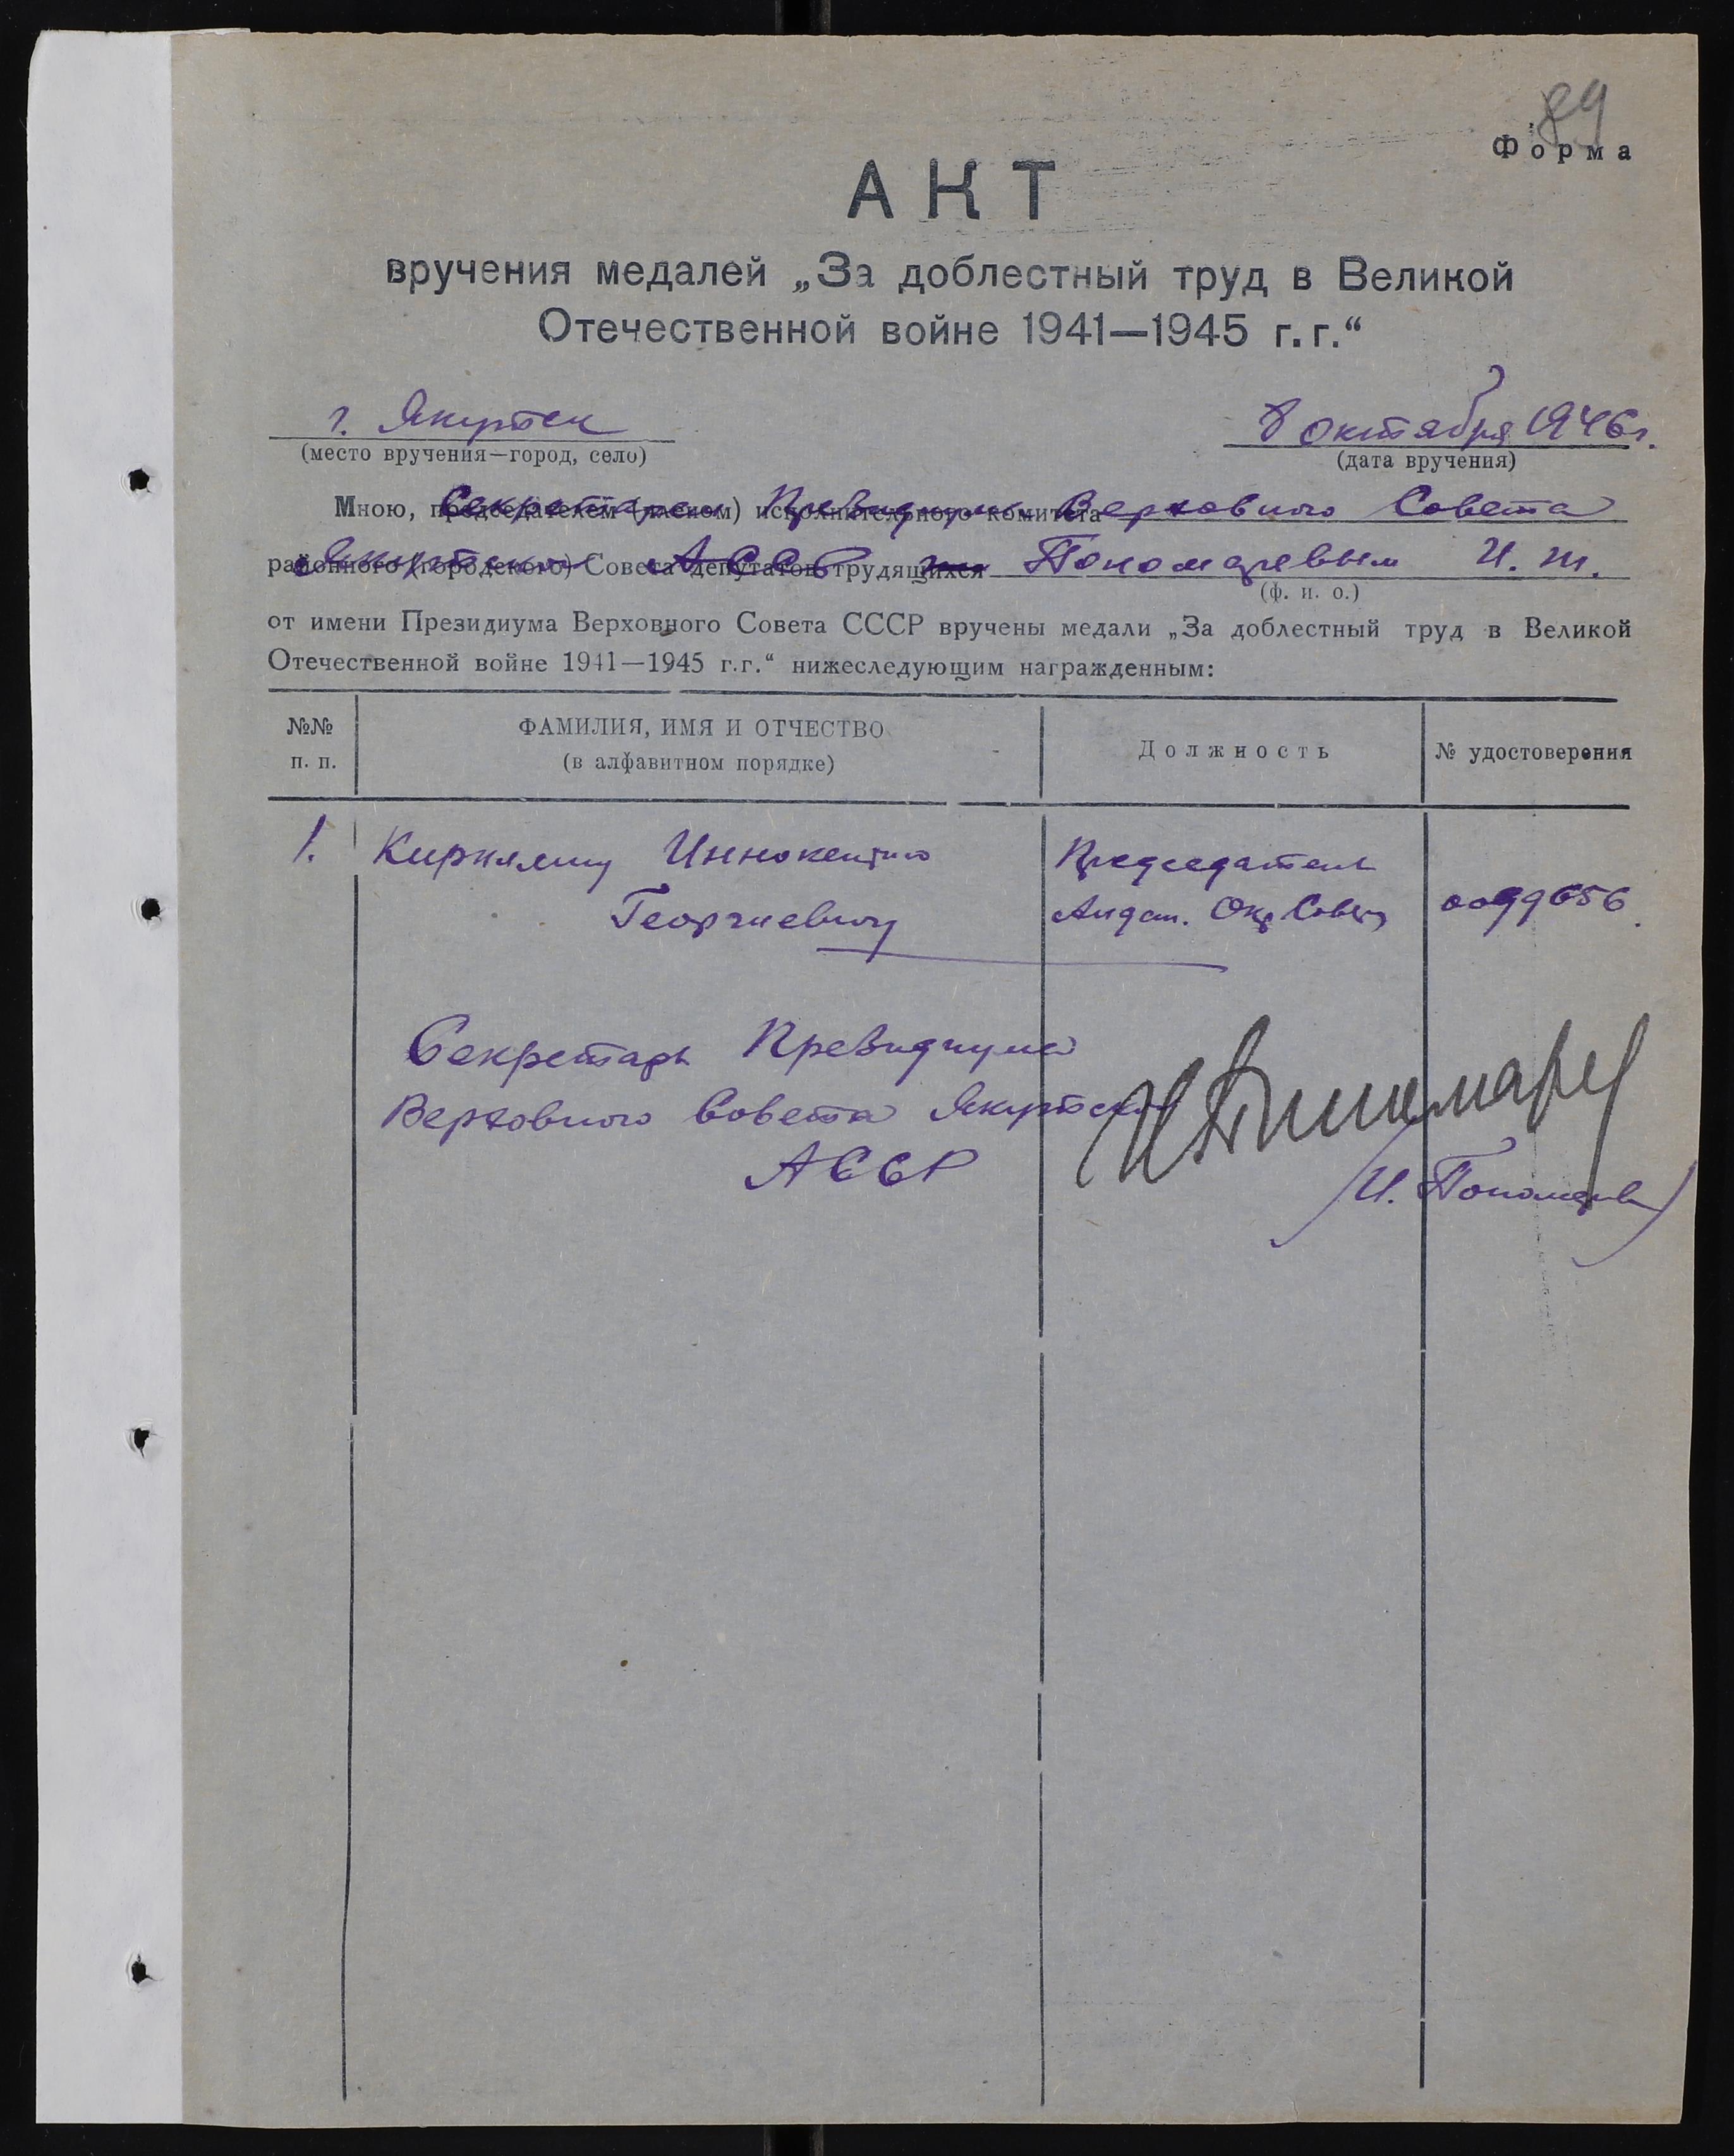 89
Форма
АКТ
вручения медалей „За доблестный труд в Великой
Отечественной войне 1941—1945 г.г.“
г. Якутск
8 октября 1946 г.
(место вручения—город, село)
(дата вручения)
Мною, председателем (членом) исполнительного комитета
Секретарем Президиума Верховного Совета
районного (городского) Совета депутатов трудящихся
Якутской АССР Пономаревым И. М.
(ф. и. о.)
от имени Президиума Верховного Совета СССР вручены медали „За доблестный труд в Великой
Отечественной войне 1941—1945 г.г.“ нижеследующим награжденным:
№№ п. п.
ФАМИЛИЯ, ИМЯ И ОТЧЕСТВО
(в алфавитном порядке)
Должность
№ удостоверения
1. Иннокентию
Георгиевичу
Председатель
Окр Совета
0099656
Секретарь Президиума
Верховного Совета Якутской
АССР
И Пономарев
/И. Пономарев/